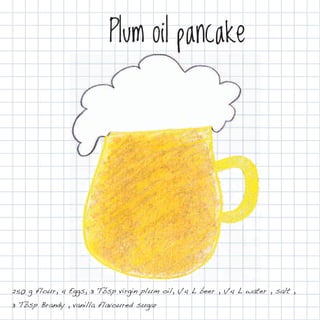 Plum oil pancake
250 g flour, 4 Eggs, 3 Tbsp virgin plum oil, 1/4 L beer , 1/4 L water , salt ,
3 Tbsp Brandy , vanilla flavoured sugar